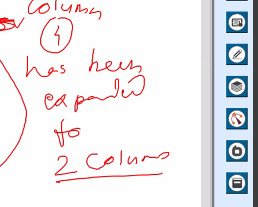 column
4
has been
expanded
to
2 columns